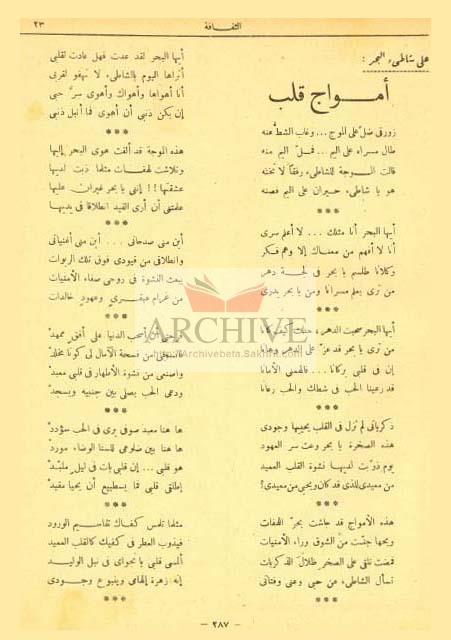 ٢٣
الثقافة
على شاطىء البحر :
أمواج قلب
زورقى ضل على الموج ... وغاب الشط عنه
طال مسراه على اليم ... فمل اليم منه
قالت الموجة للشاطىء رفقا لا تخنه
هو يا شاطىء حيران على اليم فصنه
***
أيها البحر أنا مثلك ... لا أعلم سرى
أنا لا أفهم من معناك إلا وهم فكر
وكلانا طلسم يا بحر فى لجة دهر
من ترى يعلم مسرانا ومن يا بحر يدرى
***
أيها البحر صحبت الدهر، حدث كيف كانا
من ترى يا بحر قد عز على الدهر وهانا
إن فى قلبى بركانا ... فألهمنى الأمانا
قد رعينا الحب فى شطك والحب رعانا
***
ذكرياتى لم تزل فى القلب يحييها وجودى
هذه الصخرة يا بحر وعت سر العهود
يوم ذوبت لديها نشوة القلب العميد
من معيدى للذى قد كان ويحى من معيدى؟
***
هذه الأمواج قد جاشت بحر اللهفات
ويحها جنت من الشوق وراء الأمنيات
فمضت تلقى على الصخر ظلال الذكريات
تسأل الشاطىء عن حبى وعنى وفتاتى
***
أيها البحر لقد عدت فهل عادت لقلبى
أتراها اليوم بالشاطىء لا تهفو لقربى
أنا أهواها وأهواك وأهوى سر حبى
إن يكن ذنبى أن أهوى فما أنبل ذنبى
***
هذه الموجة قد ألقت هوى البحر إليها
وتلاشت لهفات مثلما ذبت لديها
عشقتها !! إننى يا بحر غيران عليها
علمتنى أن أرى القيد انطلاقا فى يديها
***
أين منى صدحاتى ... أين منى أغنياتى
وانطلاقى من قيودى فوق تلك الربوات
يبعث النشوة فى روحى صفاء الأمنيات
من غرام عبقرى وعهود خالدات
***
أن أسحب الدنيا على أفق ممهد
من فسحة الآمال لى كونا مخلد
واصنعى من نشوة الأطهار فى قلبى معبد
ودعى الحب يصلى بين جنبيه ويسجد
***
ها هنا معبد صوفى يرى فى الحب سؤدد
ها هنا بين ضلوعى للسنا الوضاء مورد
هو قلبى ... إن قلبى بات فى ليل ملبد
إطلقى قلبى فما يسطيع أن يحيا مقيد
***
مثلما تلمس كفاك تقاسيم الورود
فيذوب العطر فى كفيك كالقلب العميد
ألمسى قلبى يا نجواى فى نبل الوليد
إنه زهرة إلهامى وينبوع وجودى
***
ARCHIVE
http://Archivebeta.Sakhrit.com
— ٢٨٧ —